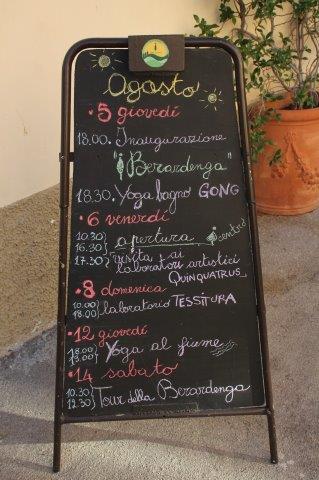 Agosto
• 5 giovedí
18.00. Inaugurazione
"Berardenga"
18.30. Yoga bagno GONG
• 6 venerdí
10.30
16.30} apertura centro
17.30} visita ai
laboratori artistici
QUINQUATRUS
• 8 domenica
10.00
18.00} laboratorio TESSITURA
• 12 giovedí
18.00
19.00} Yoga al fiume
• 14 sabato
10.30
12.30} Tour della Berardenga